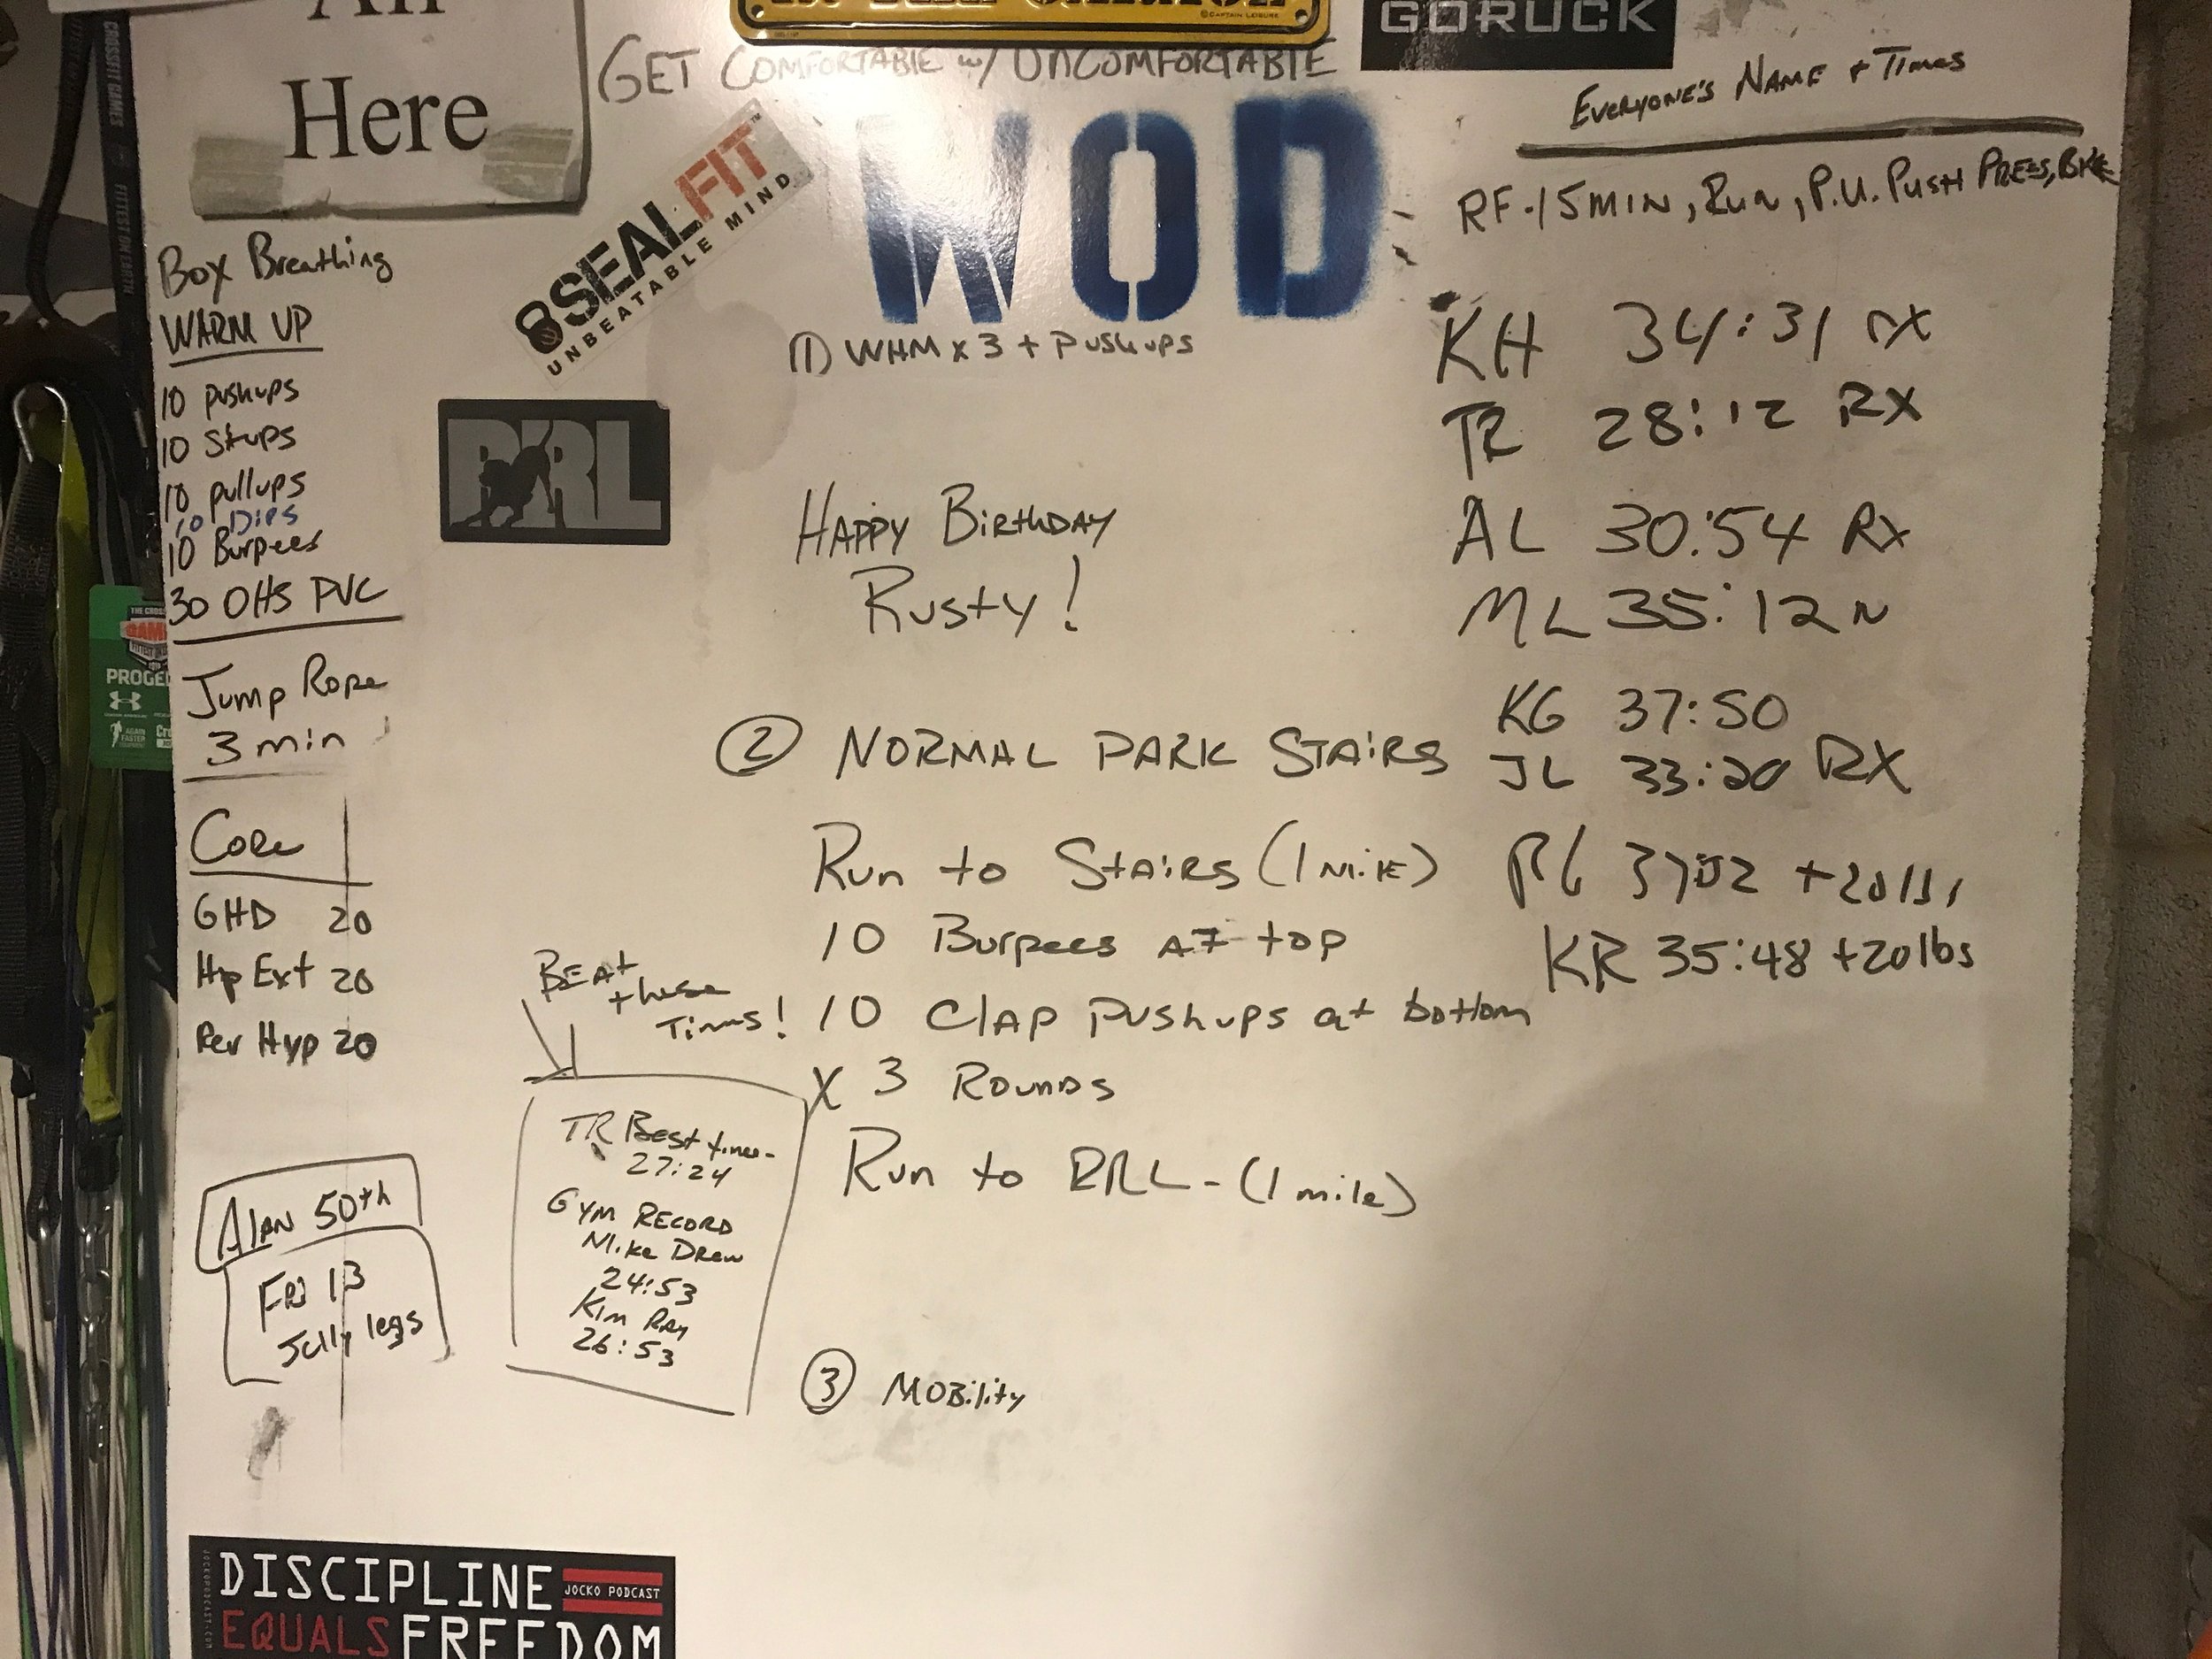 Here
GORUCK
GET COMFORTABLE w/ UNCOMFORTABLE
8SEALFIT
UNBEATABLE MIND
WOD
Box Breathing
WARM UP
10 pushups
10 Situps
10 pullups
10 Dips
10 Burpees
30 OHS PVC
Jump Rope
3 min
Core
GHD 20
Hip Ext 20
Rev Hyp 20
Alan 50th
Fri 13
Jelly legs
RRL
(1) WHM x 3 + Pushups
Happy Birthday
Rusty!
② NORMAL PARK STAIRS
Run to Stairs (1 mile)
10 Burpees at top
10 Clap Pushups at bottom
x 3 Rounds
Run to RRL - (1 mile)
③ Mobility
Beat
these
Times!
TR Best time-
27:24
Gym Record
Mike Drew
24:53
Kim Ray
26:53
Everyone's Name + Times
RF-15min, Run, P.U. Push Press, Bike
KH 34:31 rx
TR 28:12 RX
AL 30:54 Rx
ML 35:12
KG 37:50
JL 33:20 RX
+20lbs
KR 35:48 +20lbs
THE CROSSFIT
GAMES
PROGEN
AGAIN
FASTER
CROSSFIT GAMES
FITTEST ON EARTH
DISCIPLINE
JOCKO PODCAST
EQUALS FREEDOM
JOCKOPODCAST.COM
©CAPTAIN LEISURE